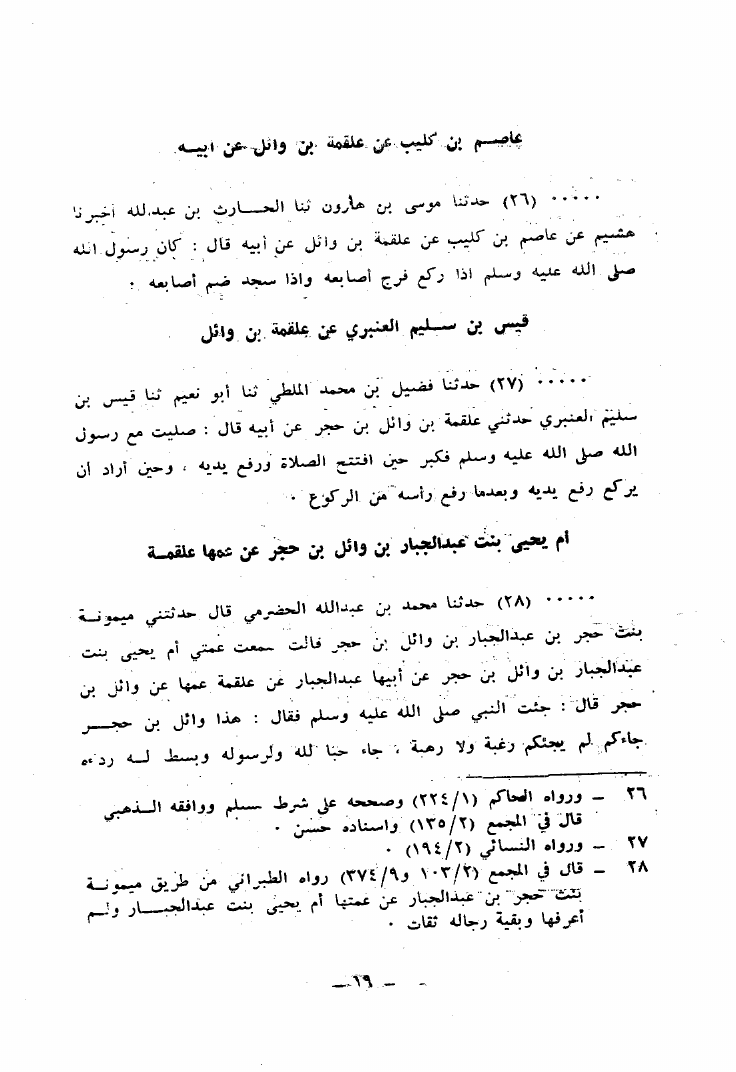 عاصم بن كليب عن علقمة بن وائل عن أبيه
..... (٢٦) حدثنا موسى بن هارون ثنا الحارث بن عبدالله أخبرنا
هشيم عن عاصم بن كليب عن علقمة بن وائل عن أبيه قال : كان رسول الله
صلى الله عليه وسلم اذا ركع فرج أصابعه واذا سجد ضم أصابعه .
قيس بن سليم العنبري عن علقمة بن وائل
..... (٢٧) حدثنا فضيل بن محمد الملطي ثنا أبو نعيم ثنا قيس بن
سليم العنبري حدثني علقمة بن وائل بن حجر عن أبيه قال : صليت مع رسول
الله صلى الله عليه وسلم فكبر حين افتتح الصلاة ورفع يديه ، وحين أراد أن
يركع رفع يديه وبعدما رفع رأسه من الركوع .
أم يحيى بنت عبدالجبار بن وائل بن حجر عن عمها علقمة
..... (٢٨) حدثنا محمد بن عبدالله الحضرمي قال حدثتني ميمونة
بنت حجر بن عبدالجبار بن وائل بن حجر قالت سمعت عمتي أم يحيى بنت
عبدالجبار بن وائل بن حجر عن أبيها عبدالجبار عن علقمة عمها عن وائل بن
حجر قال : جئت النبي صلى الله عليه وسلم فقال : هذا وائل بن حجر
جاءكم لم يجئكم رغبة ولا رهبة ، جاء حبا لله ولرسوله وبسط له رداءه
٢٦ – ورواه الحاكم (٢٢٤/١) وصححه على شرط مسلم ووافقه الذهبي
قال في المجمع (١٣٥/٢) واسناده حسن .
٢٧ – ورواه النسائي (١٩٤/٢) .
٢٨ – قال في المجمع (١٠٣/٢ و٣٧٤/٩) رواه الطبراني من طريق ميمونة
بنت حجر بن عبدالجبار عن عمتها أم يحيى بنت عبدالجبار ولم
أعرفها وبقية رجاله ثقات .
– ١٩ –